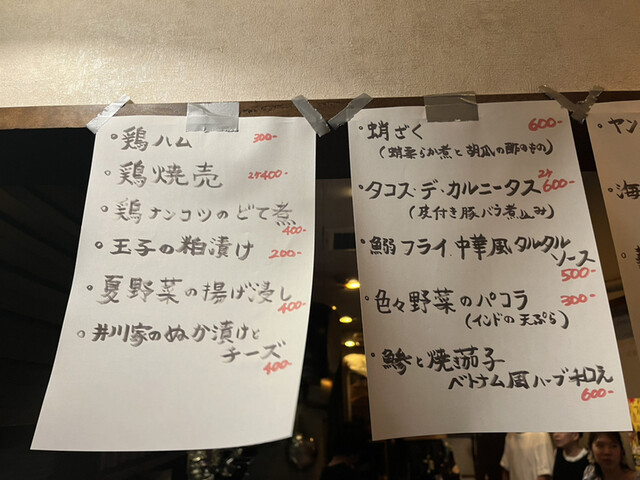 ・鶏ハム 300-
・鶏焼売 2ケ400-
・鶏ナンコツのどて煮
400-
・玉子の粕漬け 200-
・夏野菜の揚げ浸し
400-
・井川家のぬか漬けと
チーズ
400-
・蛸ざく 600-
(蛸柔らか煮と胡瓜の酢のもの)
・タコス・デ・カルニータス 2ケ600-
(皮付き豚バラ煮込み)
・鰯フライ 中華風タルタル
ソース
500-
・色々野菜のパコラ 300-
(インドの天ぷら)
・鯵と焼茄子
ベトナム風ハーブ和え
600-
・ヤン
・海